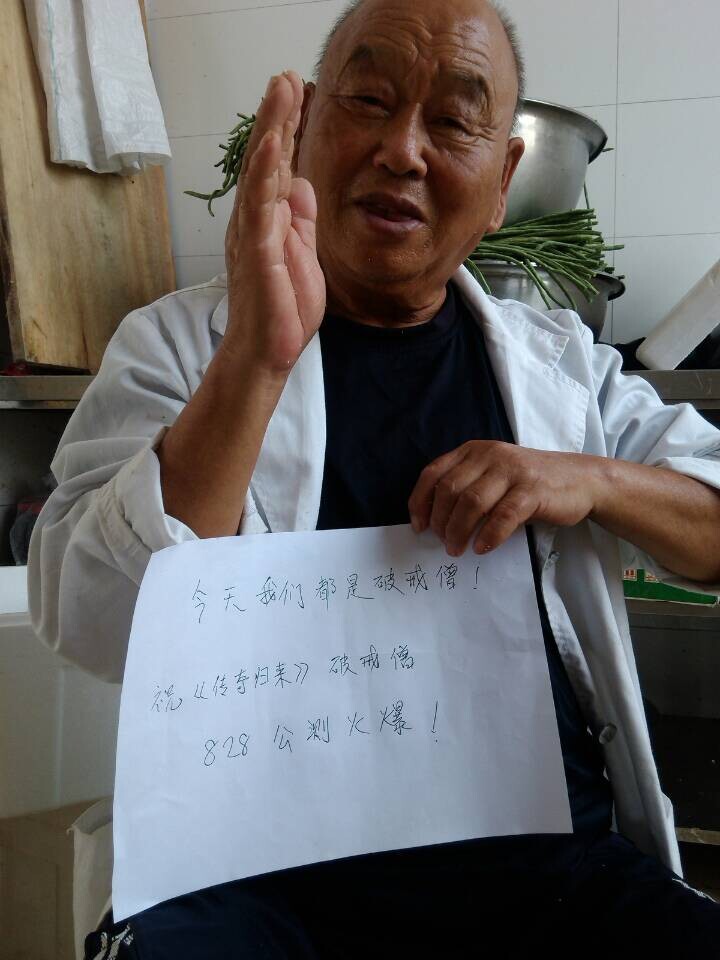 今天我们都是破戒僧!
祝《传奇归来》破戒僧
828公测火爆!